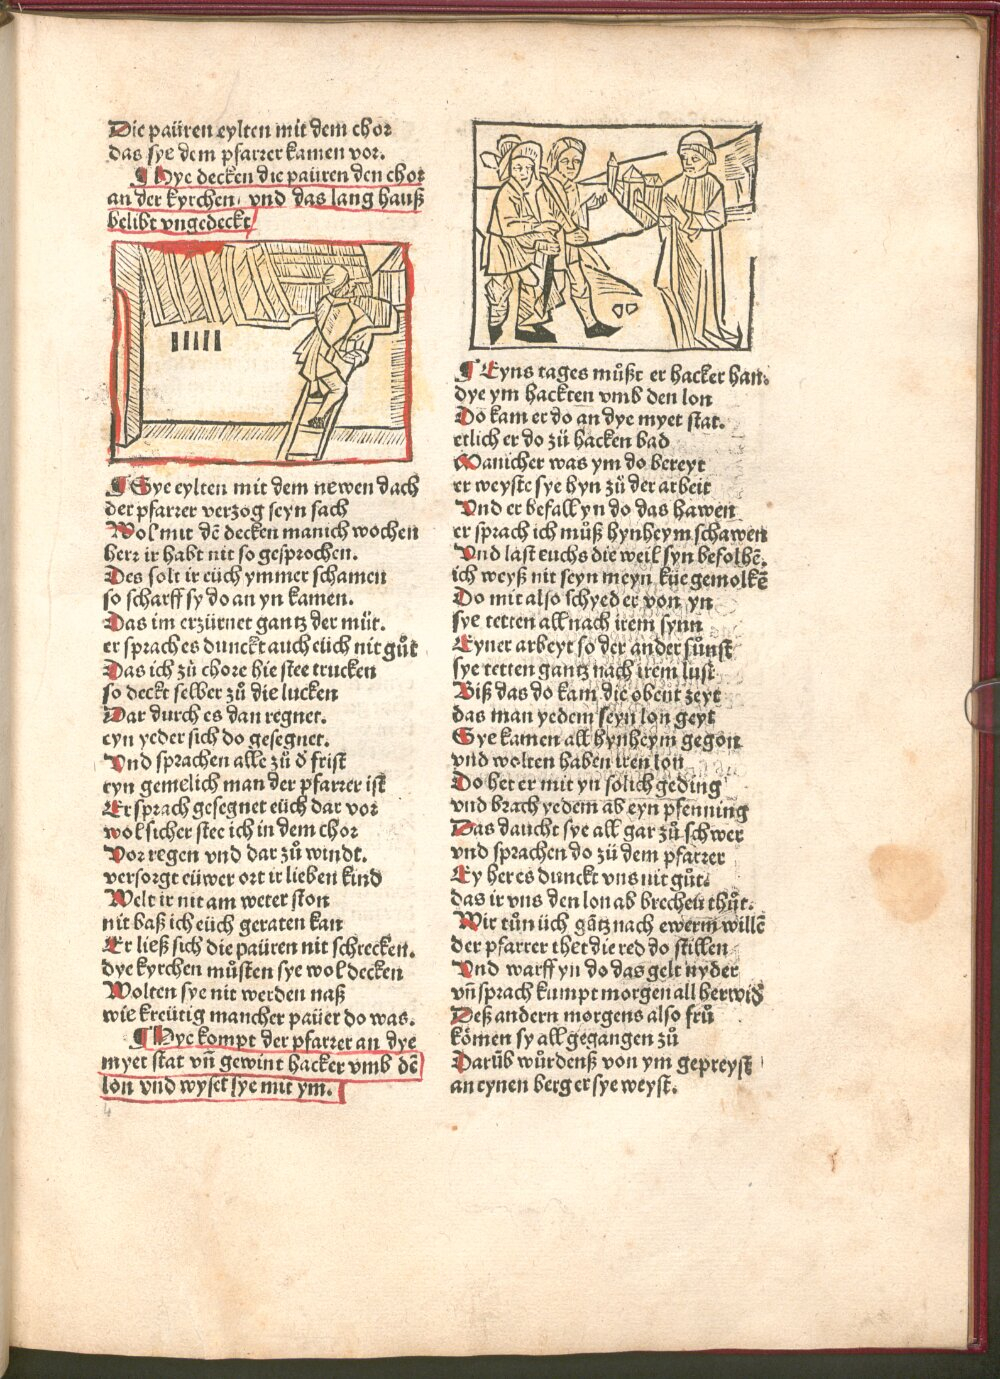 Die paüren eylten mit dem chor
das sye dem pfarrer kamen vor.
¶ Hye decken die paüren den chor
an der kyrchen, vnd das lang hauß
belibt vngedeckt
¶ Sye eylten mit dem newen dach
der pfarrer verzog seyn sach
Wol mit dē decken manich wochen
herr ir habt nit so gesprochen.
Des solt ir eüch ymmer schamen
so scharff sy do an yn kamen.
Das im erzürnet gantz der müt.
er sprach es dunckt auch eüch nit gůt
Das ich zů chore hie stee trucken
so deckt selber zů die lucken
Dar durch es dan regnet.
eyn yeder sich do gesegnet.
Vnd sprachen alle zü d̄ frist
eyn gemelich man der pfarrer ist
Er sprach gesegnet eüch dar vor
wol sicher stee ich in dem chor
Vor regen vnd dar zů windt.
versorgt eüwer ort ir lieben kind
Welt ir nit am weter ston
nit baß ich eüch geraten kan
Er ließ sich die paüren nit schrecken.
dye kyrchen můsten sye wol decken
Wolten sye nit werden naß
wie kreütig mancher paüer do was.
¶ Hye kompt der pfarrer an dye
myet stat vn̄ gewint hacker vmb dē
lon vnd wyset sye mit ym.
4
¶ Eyns tages můßt er hacker han.
dye ym hackten vmb den lon
Do kam er do an dye myet stat.
etlich er do zü hacken bad
Manicher was ym do bereyt
er weyste sye hyn zů der arbeit
Vnd er befall yn do das hawen
er sprach ich můß hynheym schawen
Vnd last euchs die weil syn befolhē.
ich weyß nit seyn meyn küe gemolkē
Do mit also schyed er von yn
sye tetten all nach irem synn
Eyner arbeyt so der ander sůnst
sye tetten gantz nach irem lust
Biß das do kam die obent zeyt
das man yedem seyn lon geyt
Sye kamen all hynheym gegon
vnd wolten haben iren lon
Do het er mit yn solich geding
vnd brach yedem ab eyn pfenning
Das daucht sye all gar zů schwer
vnd sprachen do zü dem pfarrer
Ey her es dunckt vns nit gůt.
das ir vns den lon ab brechen thůt.
Wir tůn üch gātz nach ewerm willē
der pfarrer thet die red do stillen
Vnd warff yn do das gelt nyder
vn̄ sprach kumpt morgen all herwid̄
Deß andern morgens also frů
kömen sy all gegangen zů
Darūb würdenß von ym gepreyst
an eynen berg er sye weyst.